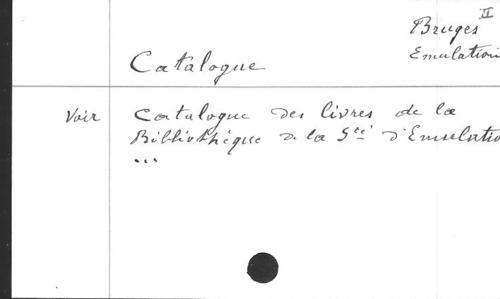 II
Bruges
Emulation
Catalogue
Voir Catalogue des livres de la
Bibliothèque de la Sté d'Emulatio
...